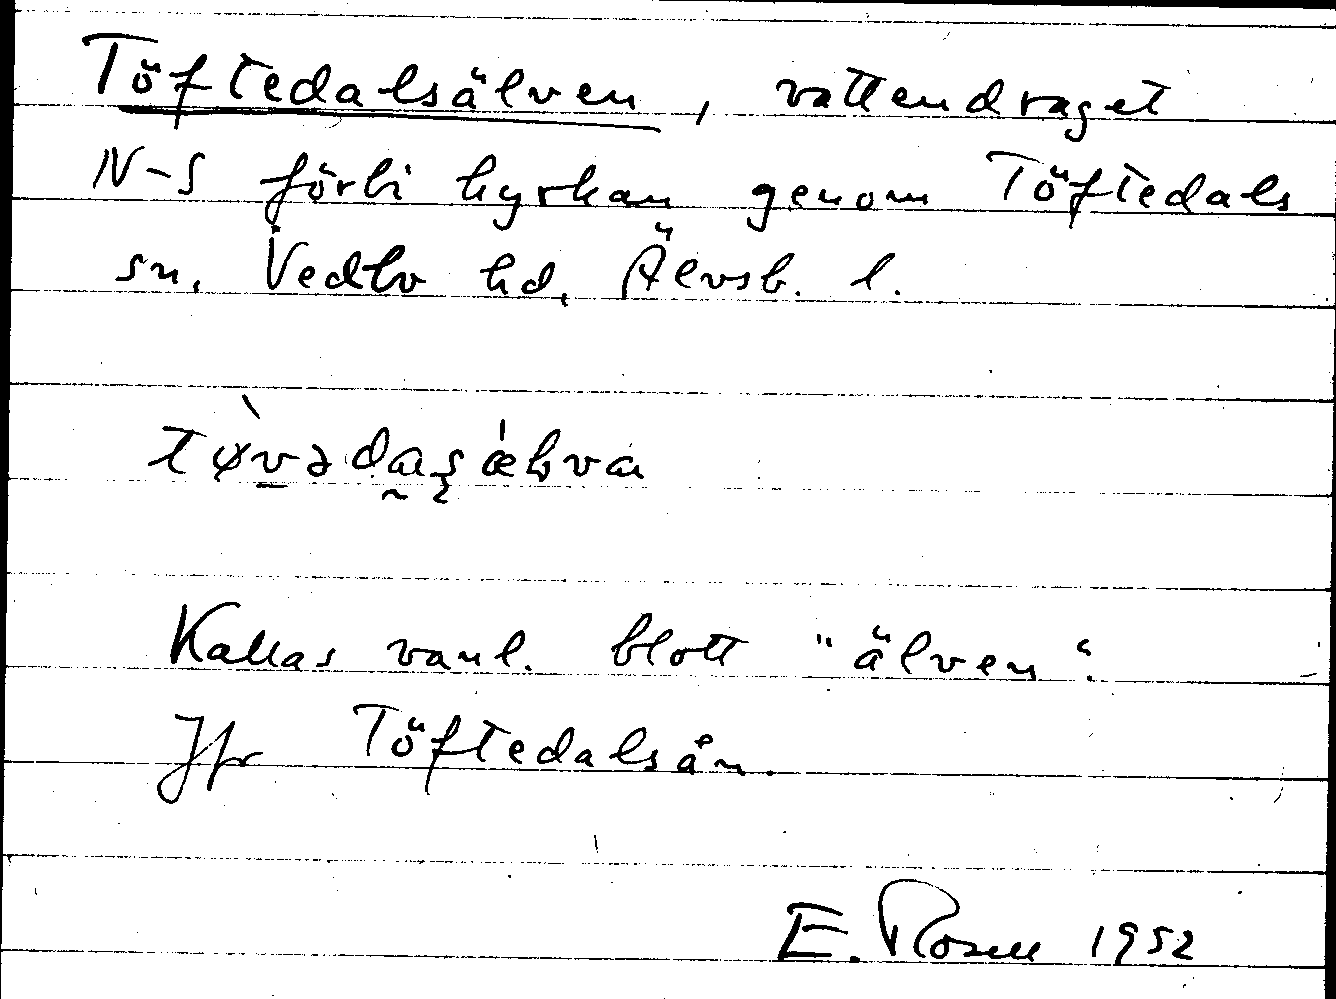 Töftedalsälven, vattendraget
N-S förbi kyrkan genom Töftedals
sn, Vedbo hd, Älvsb. l.
tø̀və da̰ş ǽƚva
Kallas vanl. blott "älven".
Jfr Töftedalsån.
E. Rosell 1952